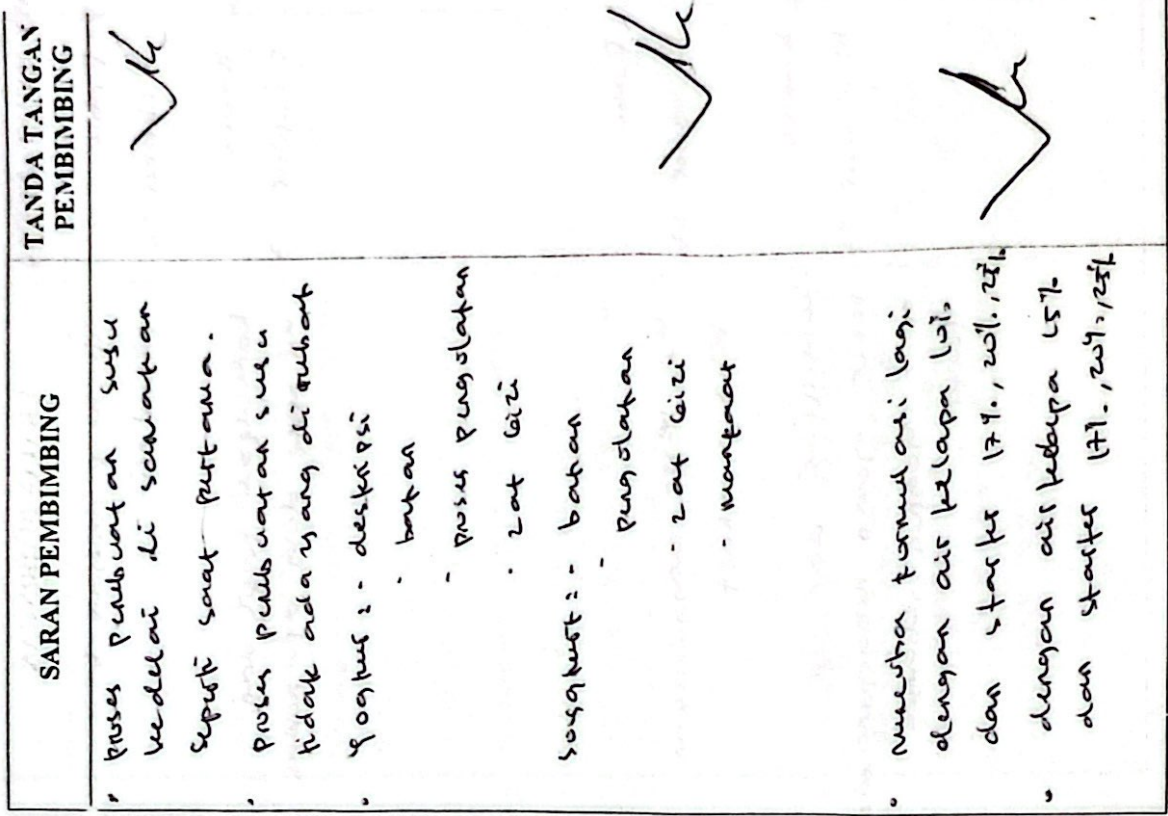 SARAN PEMBIMBING
TANDA TANGAN
PEMBIMBING
proses pembuatan susu
kedelai di samakan
seperti saat pertama.
proses pembuatan susu
tidak ada yang di rubah
yoghurt : - deskripsi
- bahan
- proses pengolahan
- zat Gizi
soyghurt : - bahan
- pengolahan
- zat Gizi
- manfaat
formulasi lagi
dengan air kelapa 10%
dan starter 17%, 20%, 23%
dengan air kelapa 15%
dan starter 17%, 20%, 23%